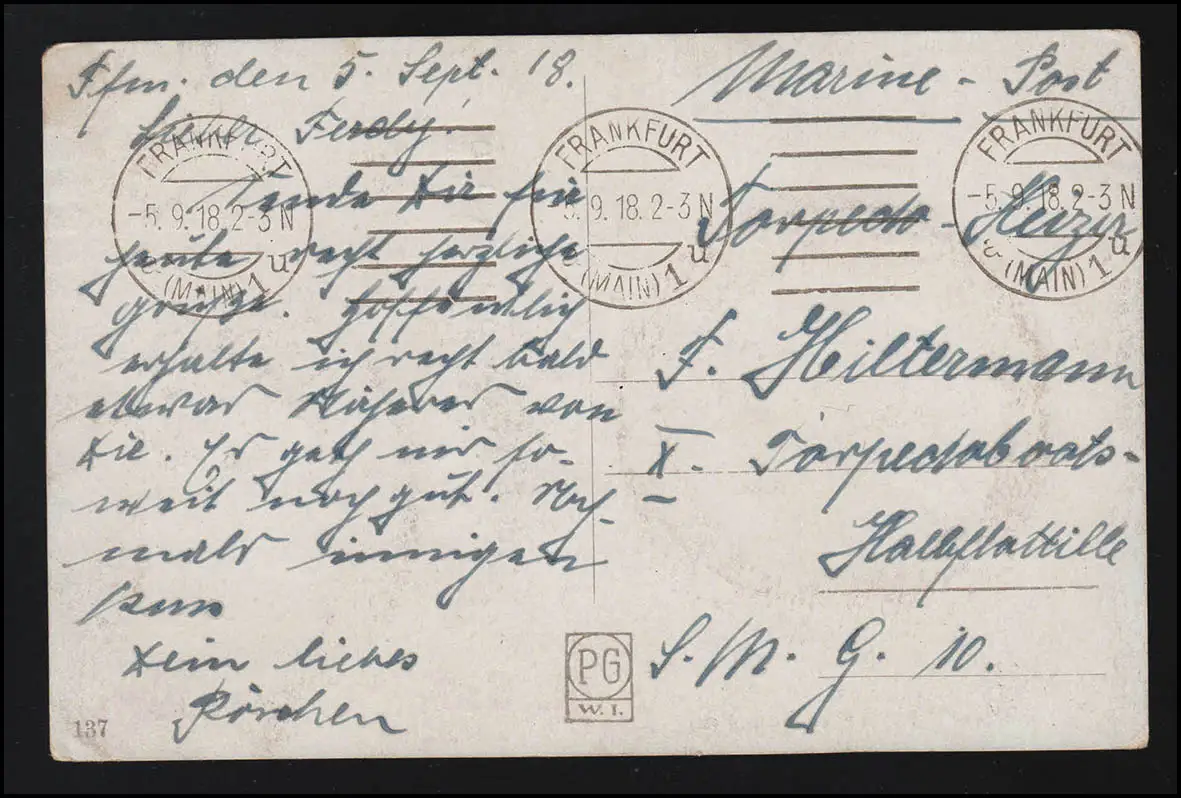 Ffm. den 5. Sept. 18.
Lieber Ferdy!
Sende Dir für
heute recht herzliche
Grüße. Hoffentlich
erhalte ich recht bald
etwas Näheres von
Dir. Es geht mir so-
weit noch gut. Noch-
mals innigen
Kuss
Dein liebes
Röschen
137
Marine - Post
Torpedo - Heizer
F. Hiltermann
X. Torpedoboots-
Halbflottille
S. M. G. 10.
FRANKFURT
-5.9.18.2-3N
(MAIN) 1 u
FRANKFURT
5.9.18.2-3N
(MAIN) 1 u
FRANKFURT
-5.9.18.2-3N
(MAIN) 1 u
PG
W. I.